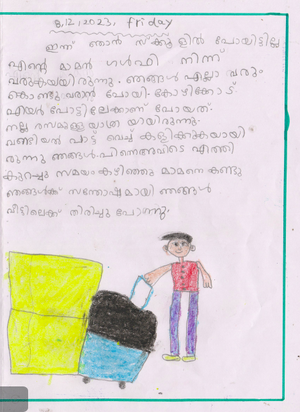 8,12,2023, friday
ഇന്ന് ഞാൻ സ്കൂളിൽ പോയിട്ടില്ല
എന്റെ മാമൻ ഗൾഫിൽ നിന്ന്
വരുകയായിരുന്നു. ഞങ്ങൾ എല്ലാവരും
കൊണ്ടുവരാൻ പോയി. കോഴിക്കോട്
എയർപോട്ടിലേക്കാണ് പോയത്.
നല്ല രസമുള്ള യാത്രയായിരുന്നു.
വണ്ടിയിൽ പാട്ട് വെച്ച് കളിക്കുകയായി
രുന്നു ഞങ്ങൾ പിന്നെ അവിടെ എത്തി
കുറച്ചു സമയം കഴിഞ്ഞു മാമനെ കണ്ടു
ഞങ്ങൾക്ക് സന്തോഷമായി ഞങ്ങൾ
വീട്ടിലേക്ക് തിരിച്ചു പോന്നു.